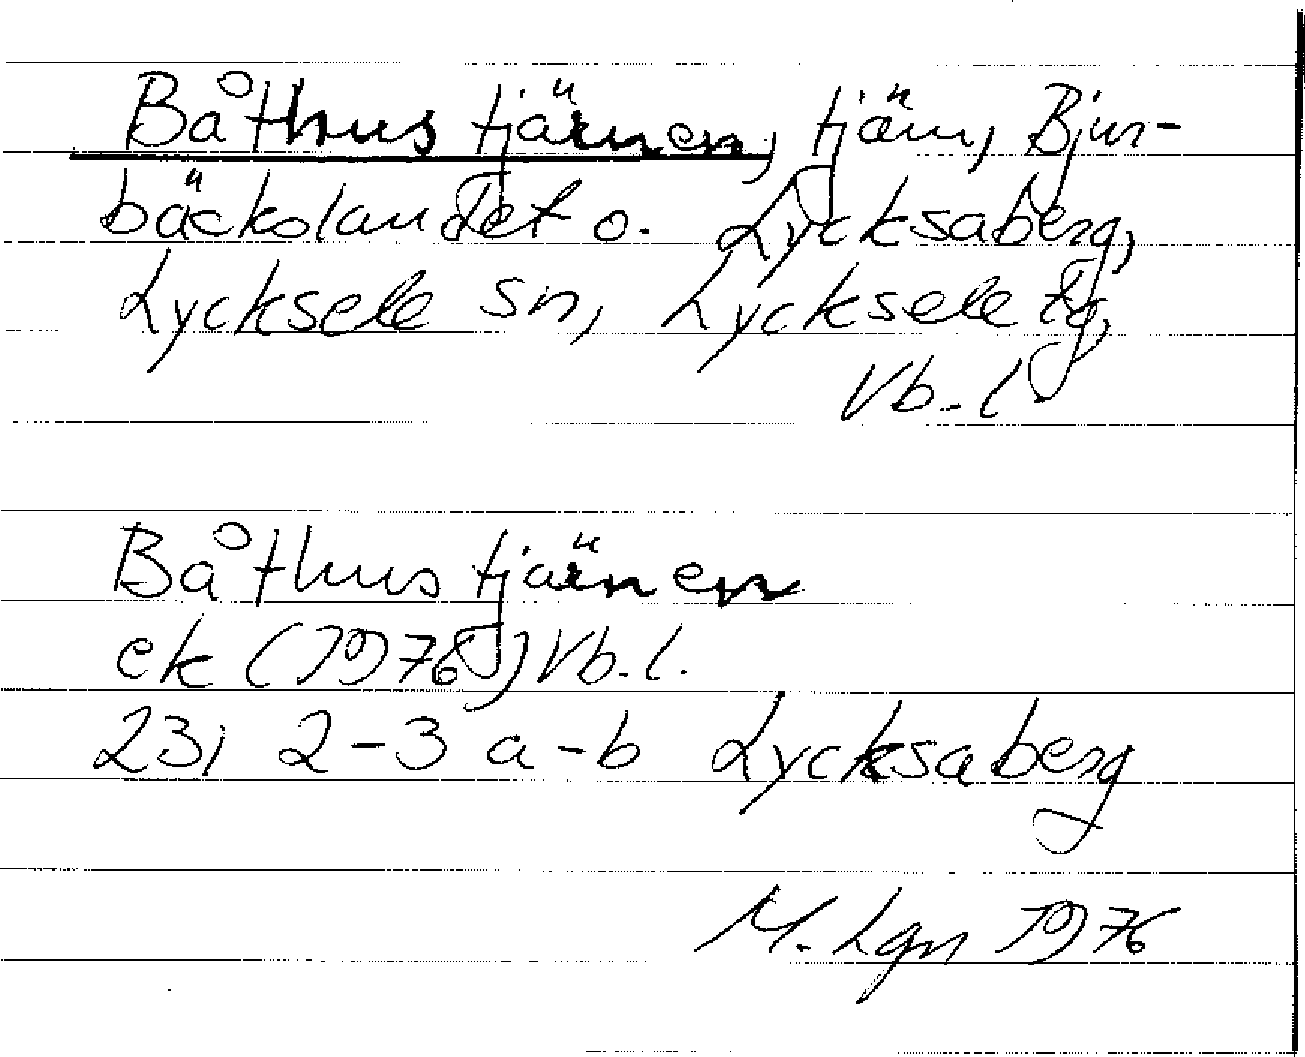 Båthustjärnen, tjärn, Bjur-
bäckslandet o. Lycksaberg,
Lycksele sn, Lycksele tg,
Vb. l.
Båthustjärnen
ek (1976) Vb. l.
23i 2-3 a-b Lycksaberg
M. Lgn 1976